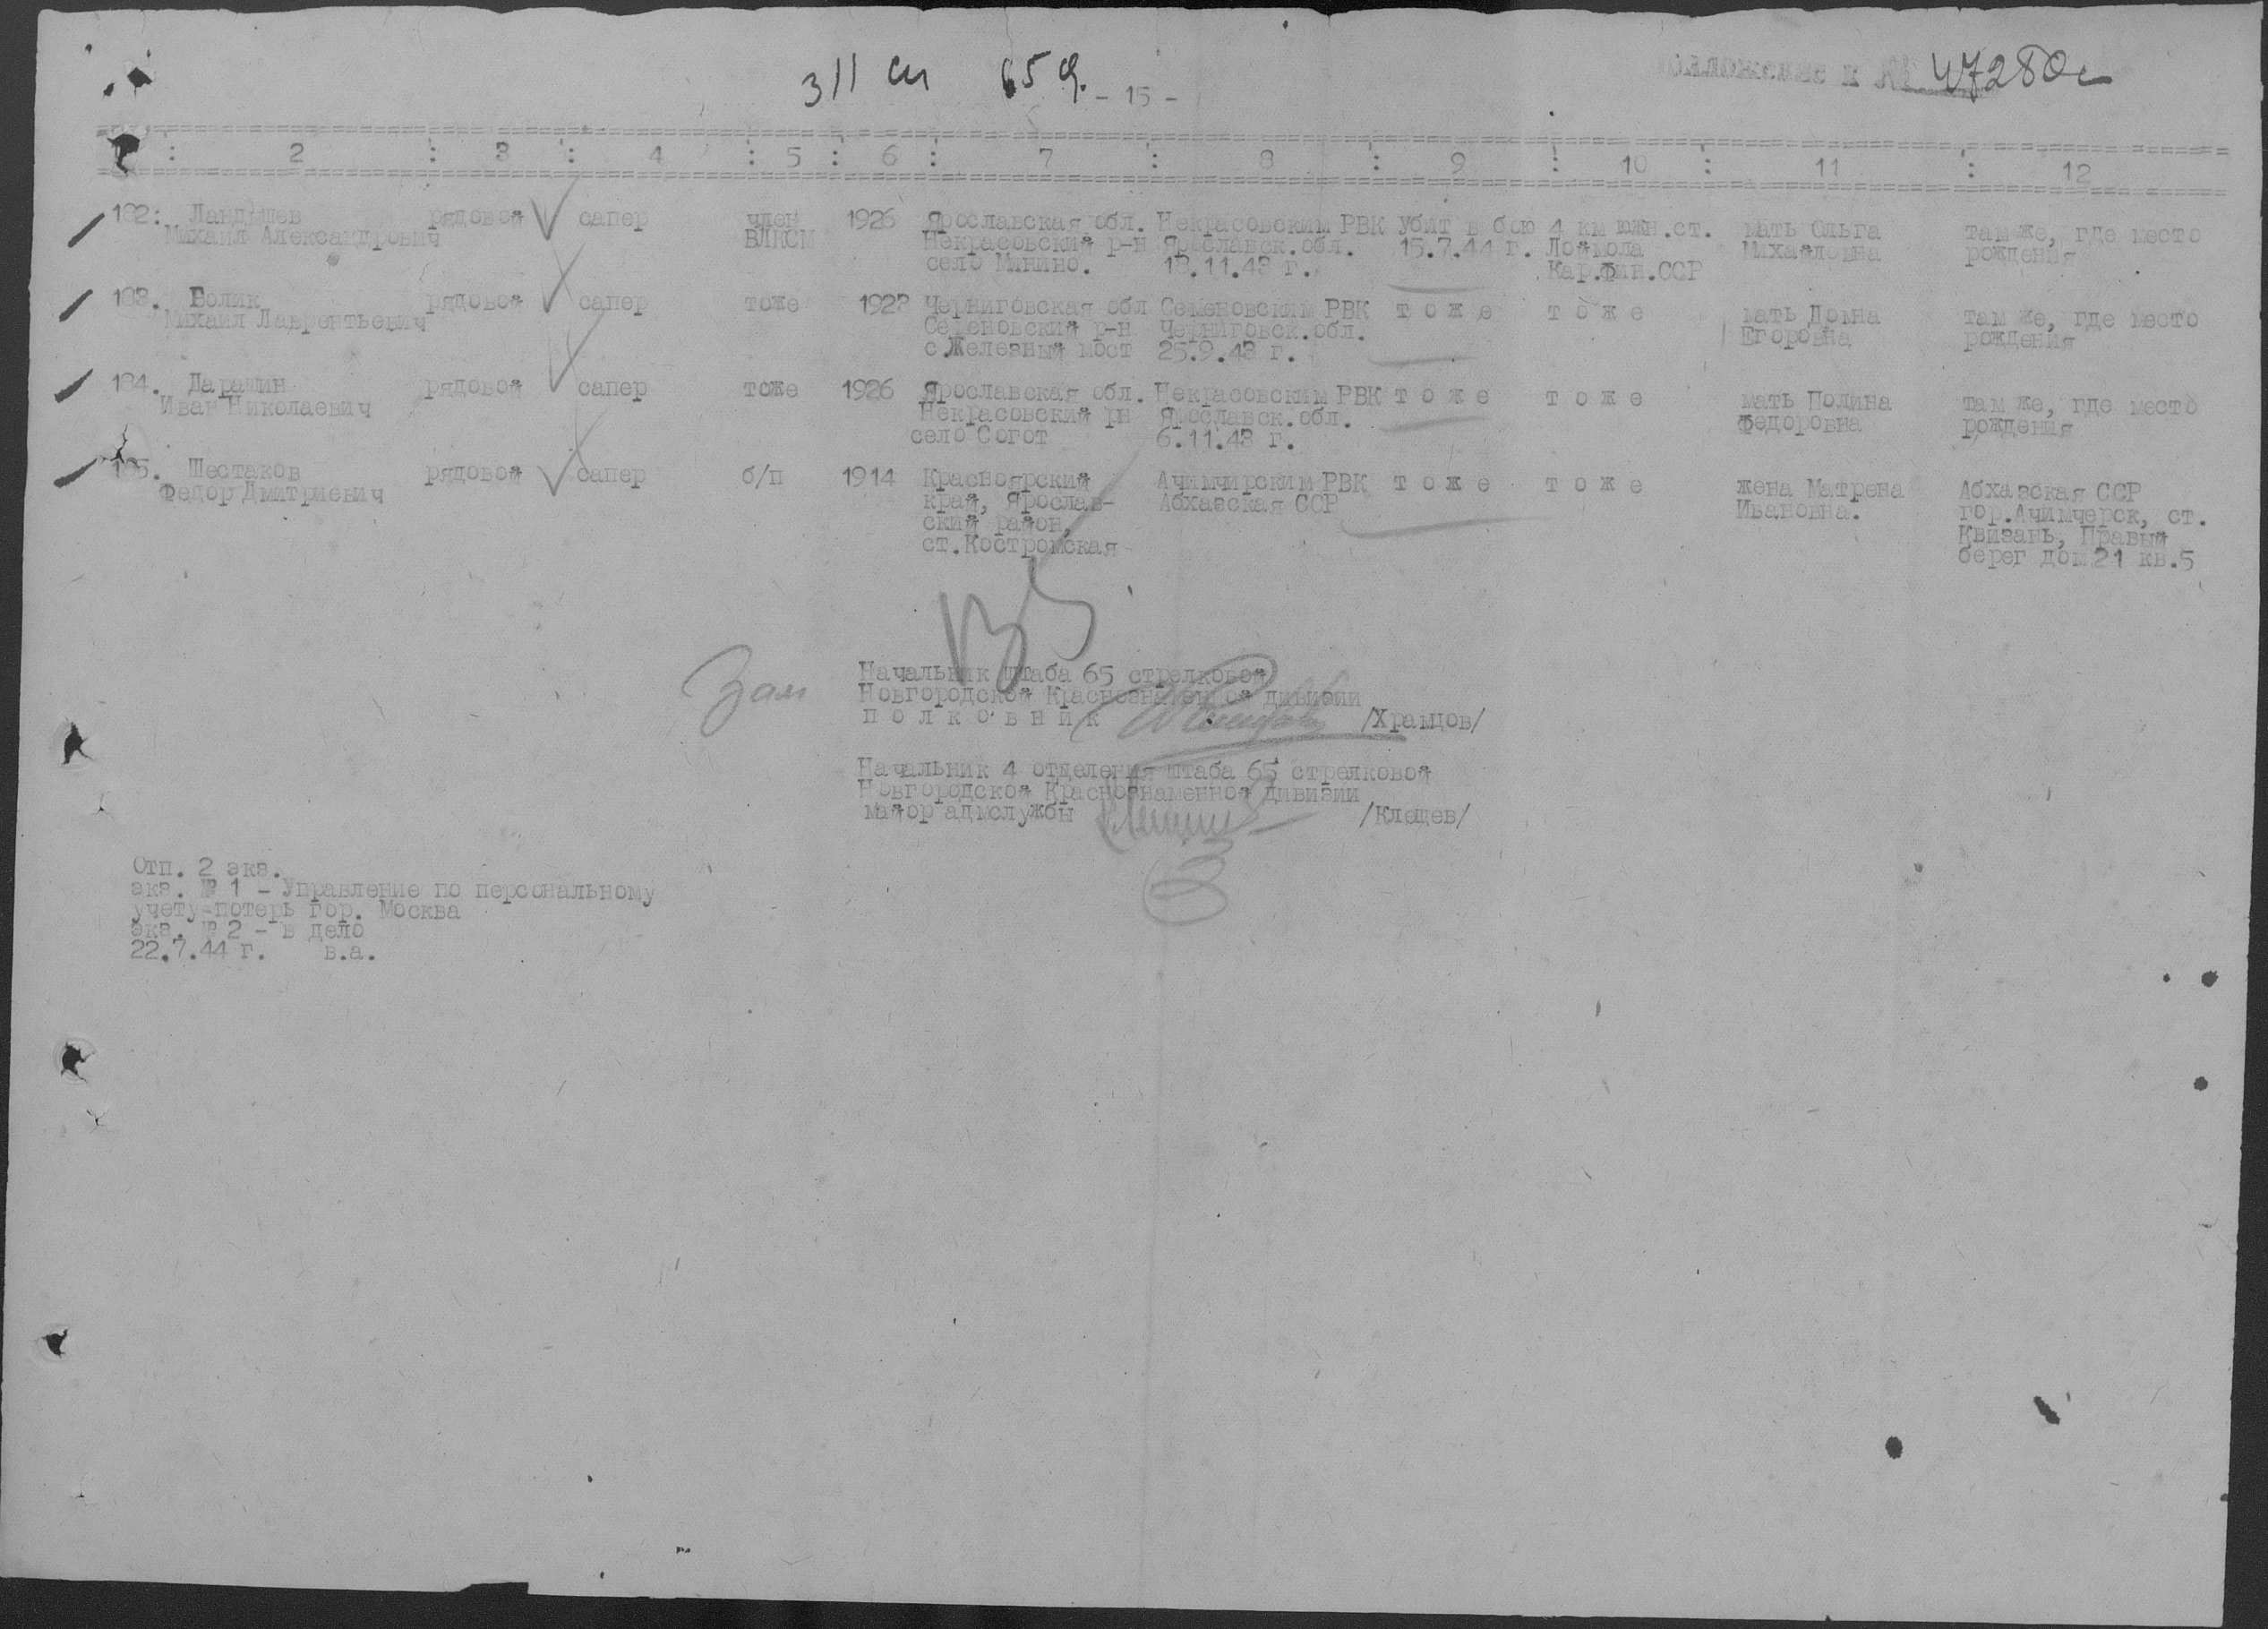 311 сп 65 д. - 15 -
Приложение к № 47280с
2 : 3 : 4 : 5 : 6 : 7 : 8 : 9 : 10 : 11 : 12
182. Ландышев рядовой сапер член 1926 Ярославская обл. Некрасовским РВК убит в бою 4 км южн.ст. мать Ольга там же, где место
Михаил Александрович ВЛКСМ Некрасовский р-н Ярославск.обл. 15.7.44 г. Лоймола Михайловна рождения
село Минино. 18.11.43 г. Кар.Фин.ССР
183. Волик рядовой сапер тоже Черниговская обл Семеновским РВК т о ж е т о ж е мать Домна там же, где место
Михаил Лаврентьевич Семеновский р-н Черниговск.обл. Егоровна рождения
с.Железный мост 25.9.43 г.
184. Дарашин рядовой сапер тоже 1926 Ярославская обл. Некрасовским РВК т о ж е т о ж е мать Полина там же, где место
Иван Николаевич Некрасовский рн Ярославск.обл. Федоровна рождения
село Согот 6.11.43 г.
185. Шестаков рядовой сапер б/п 1914 Красноярский Ачимчирским РВК т о ж е т о ж е жена Матрена Абхазская ССР
Федор Дмитриевич край, Ярослав- Абхазская ССР Ивановна. гор.Ачимчерск, ст.
ский район, Квизань, Правый
ст.Костромская берег дом 21 кв.5
Зам Начальник штаба 65 стрелковой
Новгородской Краснознаменной дивизии
п о л к о в н и к /Храмцов/
Начальник 4 отделения штаба 65 стрелковой
Новгородской Краснознаменной дивизии
майор адмслужбы /Клещев/
Отп. 2 экз.
экз. № 1 - Управление по персональному
учету потерь гор. Москва
экз. № 2 - в дело
22.7.44 г. в.а.